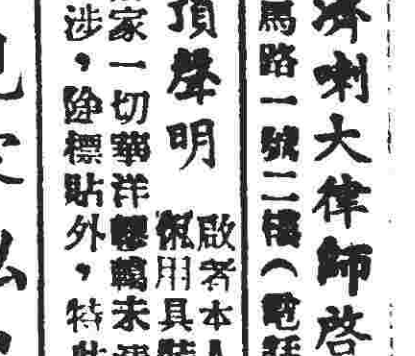 濟喇大律師啓
馬路一號二樓（電話
頂聲明
啟者本人
俬用具裝
家一切華洋轇轕未清
涉，除標貼外，特此